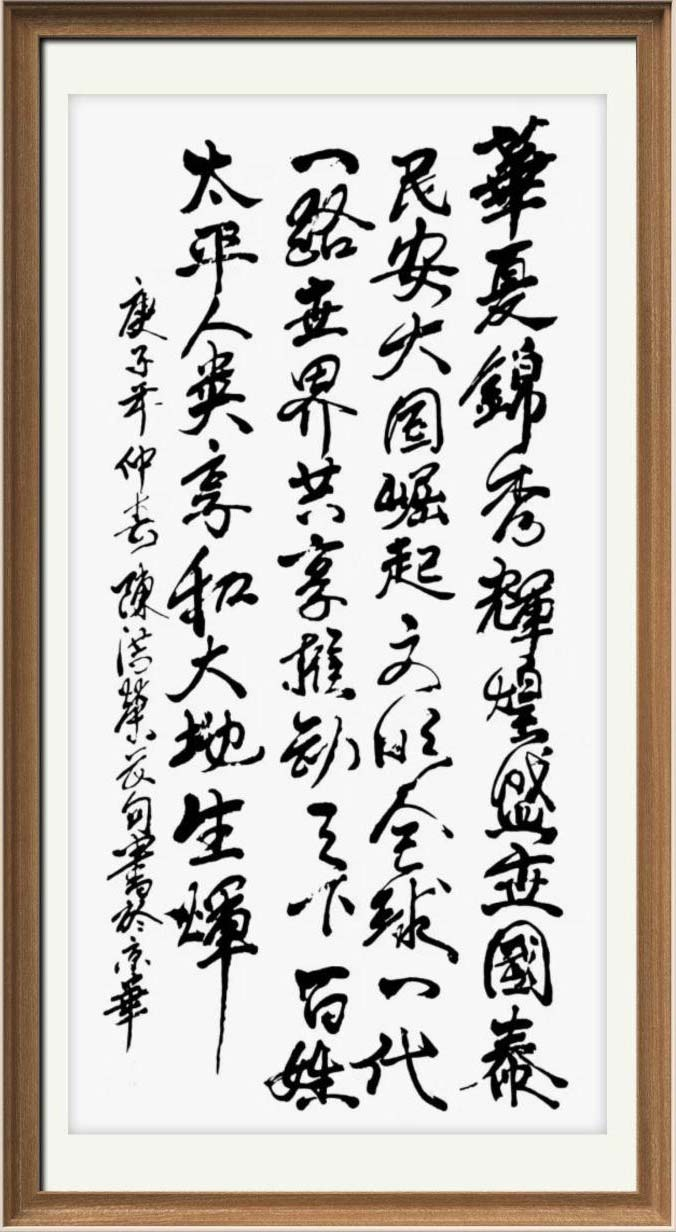 華夏錦秀輝煌盛世國泰
民安大国崛起文明全球一代
一路世界共享推动天下百姓
太平人类享和大地生輝
庚子年仲春陳榮长句書於京華